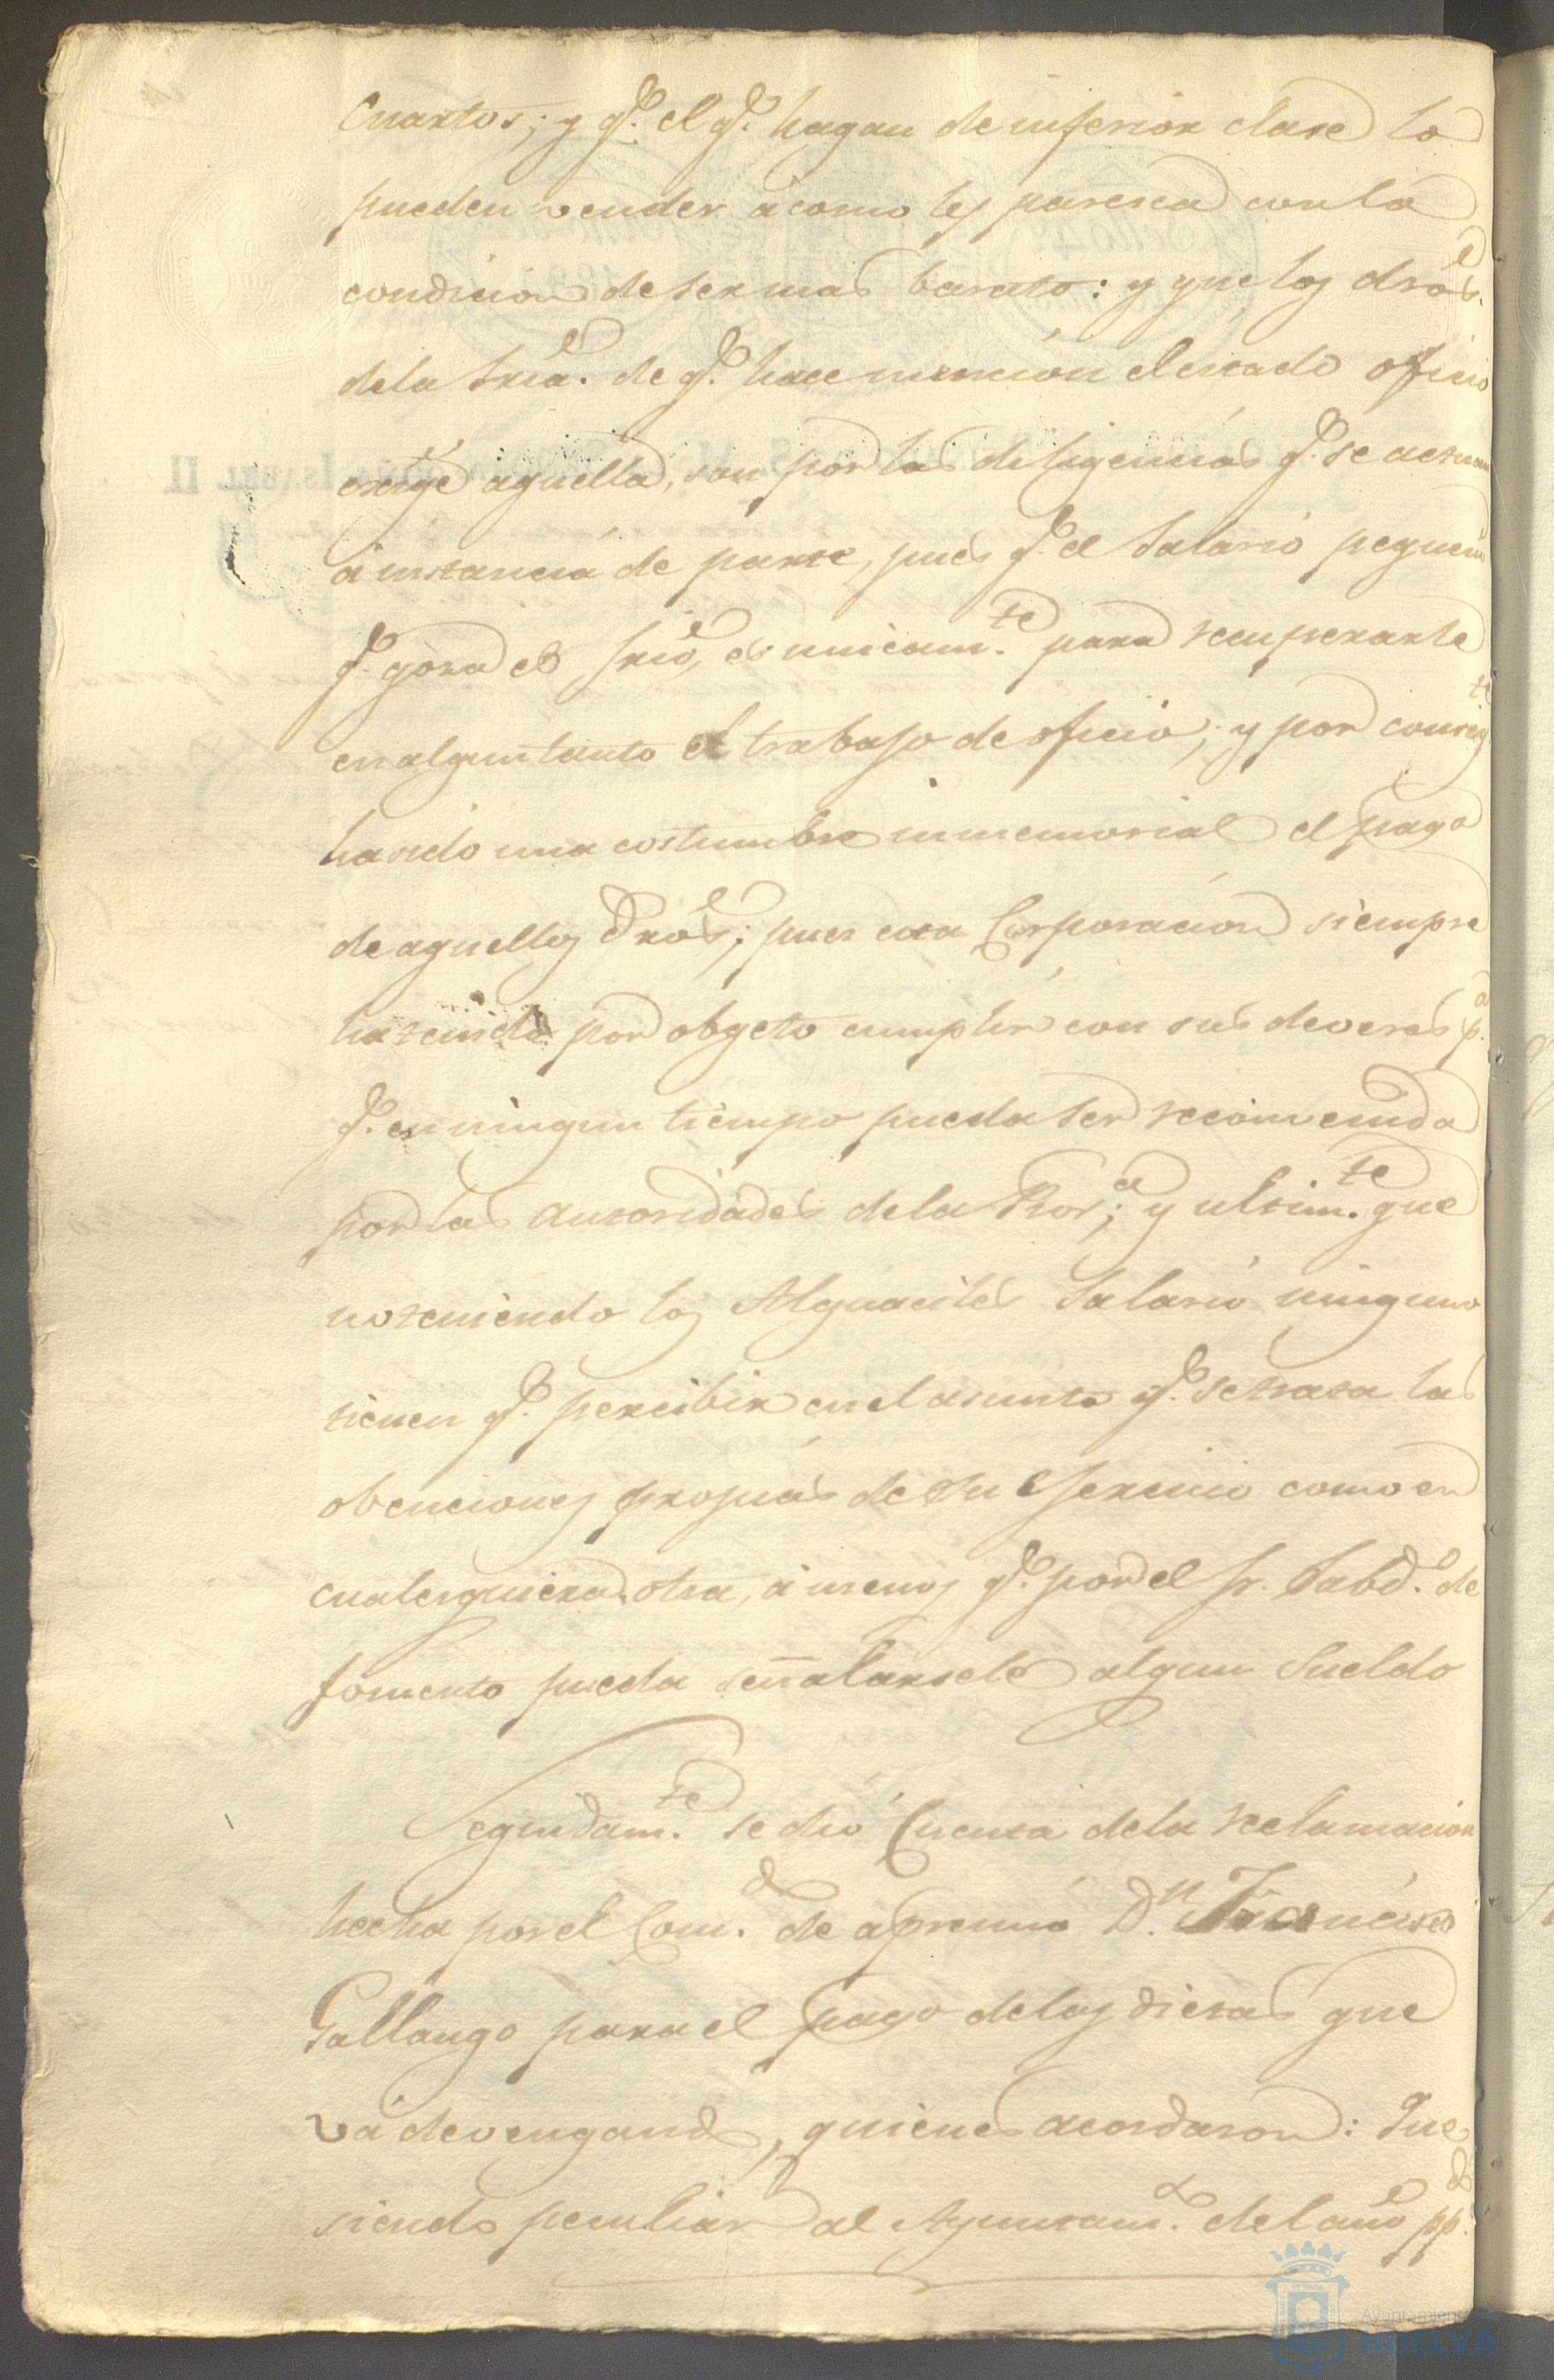 Cuartos; y q.e el q.e hagan de inferior clase lo
pueden vender à como les paresca con la
condicion de ser mas barato: y que los dros.
de la Sria. de q.e hace mencion el citado oficio
exige aquella, son por las diligencias q.e se actuan
à instancia de parte, pues q.e el Salario pequeño
q.e goza el Srio, es unicam.te para recuperarle
en algun tanto el trabajo de oficio; y por consig.te
ha sido una costumbre inmemorial el pago
de aquellos Dros; pues esta Corporacion siempre
ha tenido por obgeto cumplir con sus deveres p.a
q.e en ningun tiempo pueda ser reconvenida
por las autoridades de la Prov.a; y ultim.te que
no teniendo los Alguaciles Salario ninguno
tienen q.e percibir en el asunto q.e se trata las
obenciones propias de su Esercicio como en
cualesquiera otra, à menos q.e por el Sr. Subd.o de
fomento pueda señalarsele algun Sueldo
Seguidam.te se dió Cuenta de la reclamacion
hecha por el Com.do de apremio D.n Francisco
Gallango para el pago de las dietas que
và devengando, quienes acordaron: Que
siendo peculiar al Ayuntam.to del año pp.do
SELLO 4º
ISABEL II.
Ayuntamiento
HUELVA